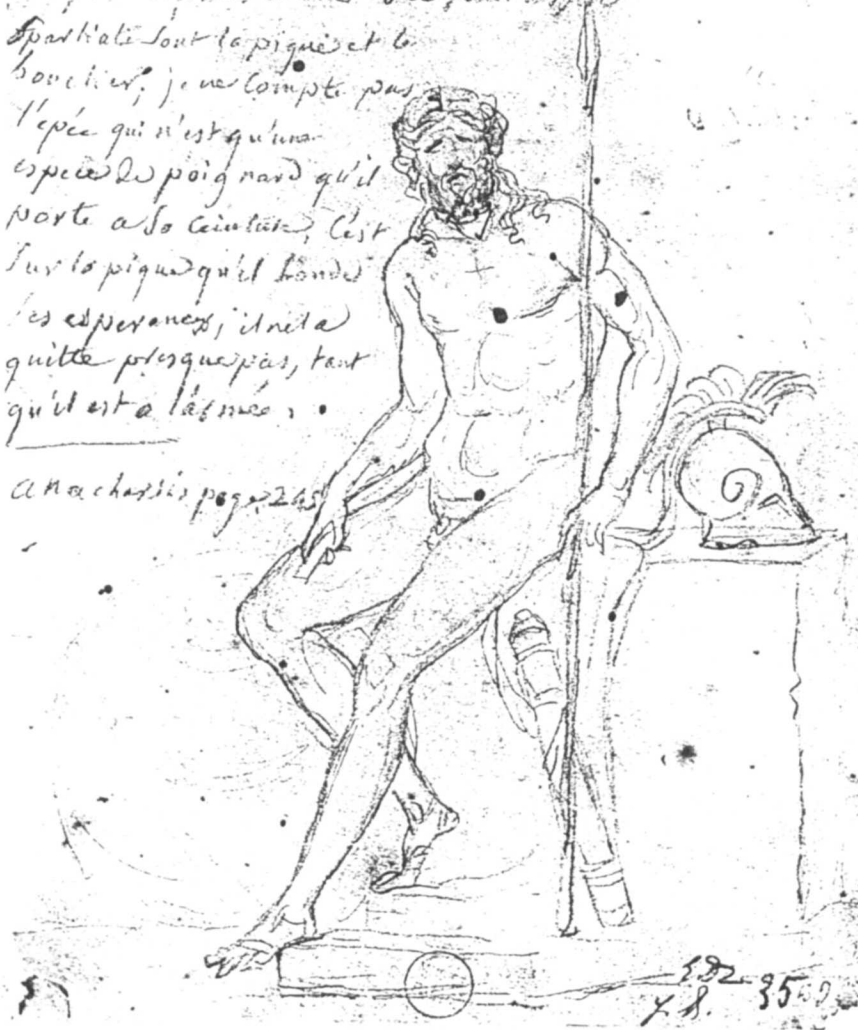 Spartiate sont la pique et le
bouclier; je ne compte pas
l'épée qui n'est qu'une
espece de poignard qu'il
porte a sa ceinture, c'est
sur la pique qu'il fonde
ses esperances; il ne la
quitte presque pas, tant
qu'il est a l'armée.
anacharsis page, 245